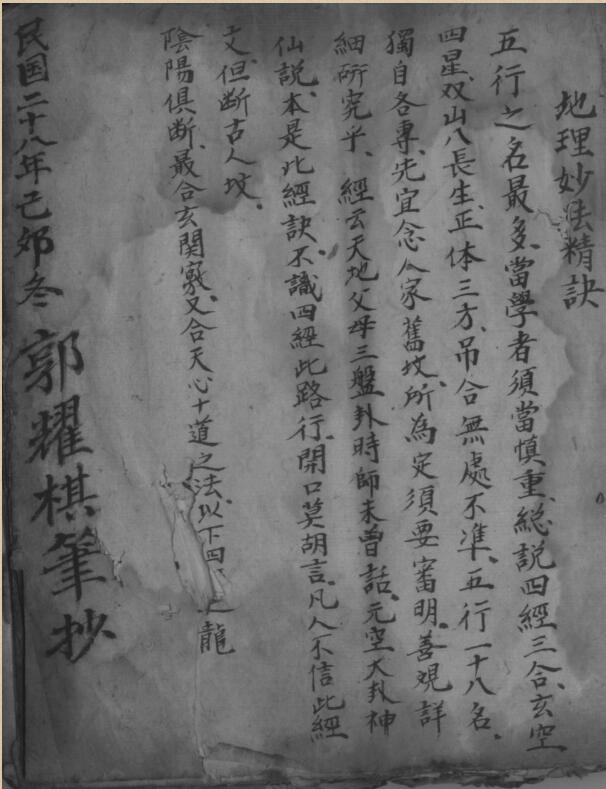 地理妙法精訣
五行之名最多、當學者須當慎重、総説四經三合、玄空
四星、双山八長生、正体三方、吊合無處不准、五行一十八名。
獨自各專、先宜念人家舊坟、所為定須要審明、善覌詳
細研究乎、經云天地父母三盤卦時師未曾話、元空大卦神
仙説、本是此經訣、不識四經此路行、開口莫胡言、凡人不信此經
文、但断古人坟。
陰陽俱断、最合玄関竅、又合天心十道之法、以下四 龍
民国二十八年己夘冬 郭耀棋筆抄